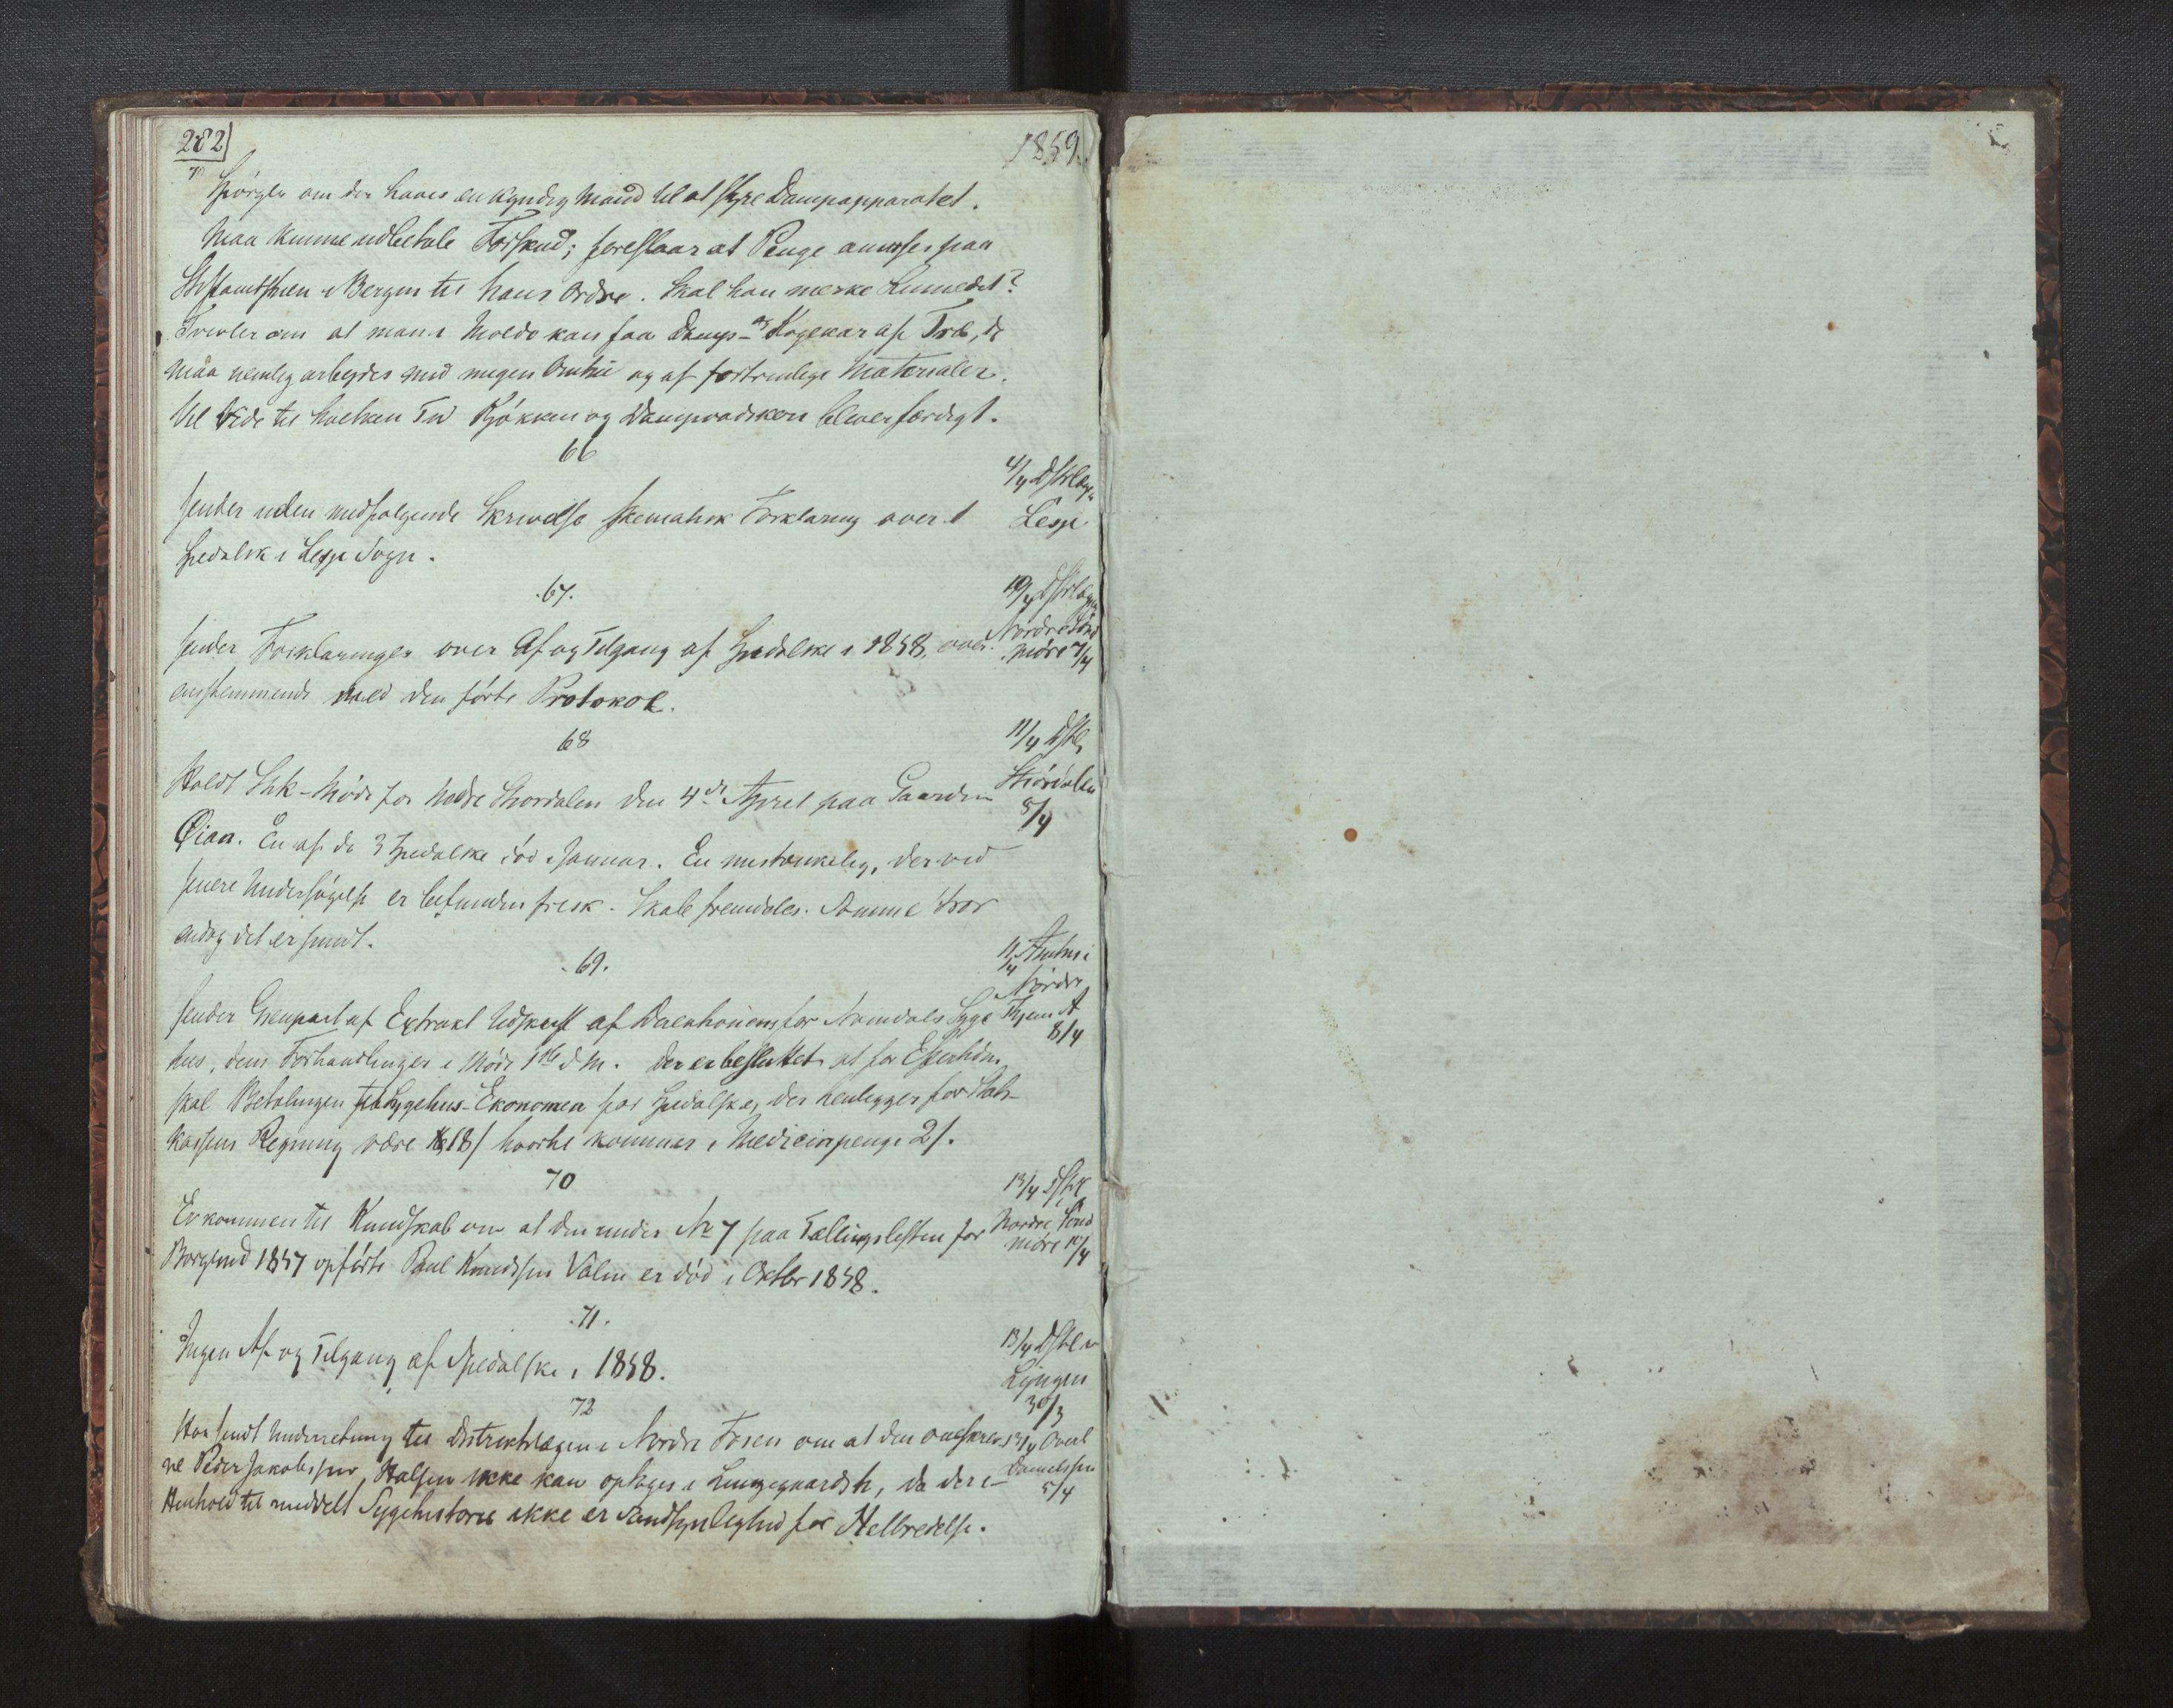 282
1859.
Spörgler om der haves en kyndig Mand til at styre Dampapparatet.
Maa kunne udbetale Forskud; foreslaar at Penge anvises paa
Stiftamtstuen i Bergen til hans Ordre. Skal han mærke Linnedet?
Tvivler om at man i Molde kan faa Damp- og Kogekar af Træ, de
maa nemlig arbeydes med megen Omhu og af fortrinlige Materialer.
Vil vide til hvilken Tid Kjökken og Dampvadsken bliver færdigt.
66
4/4 Dstrlæge
Lesje
Sender uden medfølgende Skrivelse skematisk Forklaring over 1
Spedalsk i Lesje Sogn.
.67.
10/4 Dstrlægen
Nordre Sönd
möre 7/4
Sender Forklaringer over Af og Tilgang af Spedalske i 1858, over
ensstemmende med den förte Protokol.
68
11/4 Dstl
Stiördalen
8/4
Holdt Shk-Möde for Nedre Stiordalen den 4de April paa Gaarden
Öian. En af de 3 Spedalske död i Januar. En mistænkelig, der ved
senere Undersögelse er befunden frisk. Skale fremdeles. Samme tror
endog det er sundt.
.69.
11/4 Amtm i
Nordre
Thjem A
8/4
Sender Gjenpart af Extrakt Udskrift af Direktionens for Namdals Syge
hus, dens Forhandlinger i Möde 1ste d. M. Der er besluttet at for Eftertiden
skal Betalingen til Sygehus-Ekonomen for Spedalske, der henlegges for Stats-
kassens Regning være 18 / hvortil kommer i Medicinpenge 2/.
70
13/4 Dstl
i
Nordre Sönd
möre 10/4
Er kommen til Kundskab om at den under No 7 paa Tællingslisten for
Borgund 1857 opförte Paul Knudssen Valen er död i Oktbr 1858.
.71.
13/4 Dstl
Lyngen
30/3
Ingen Af og Tilgang af Spedalske i 1858.
72
13/4 Overl
Danielssen
5/4
Har sendt Underretning til Distriktslægen i Nordre Fosen om at den omskrev
ne Peder Jakobssen, Halsen ikke kan optages i Lungegaardsh, da der i
Henhold til meddelt Sygehistorie ikke er Sandsynlighed for Helbredelse.